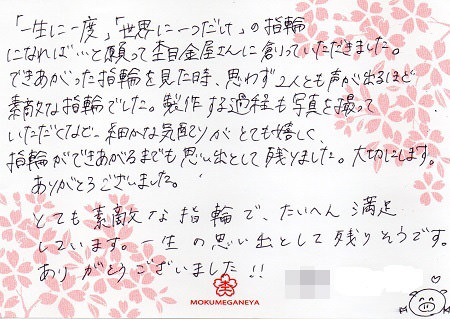 「一生に一度」「世界に一つだけ」の指輪
になれば…と願って杢目金屋さんに創っていただきました。
できあがった指輪を見た時、思わず2人とも声が出るほど
素敵な指輪でした。製作する過程も写真を撮って
いただくなど…細かな気配りがとても嬉しく、
指輪ができあがるまでも思い出として残りました。大切にします。
ありがとうございました。
とても素敵な指輪で、たいへん満足
しています。一生の思い出として残りそうです。
ありがとうございました!!
MOKUMEGANEYA